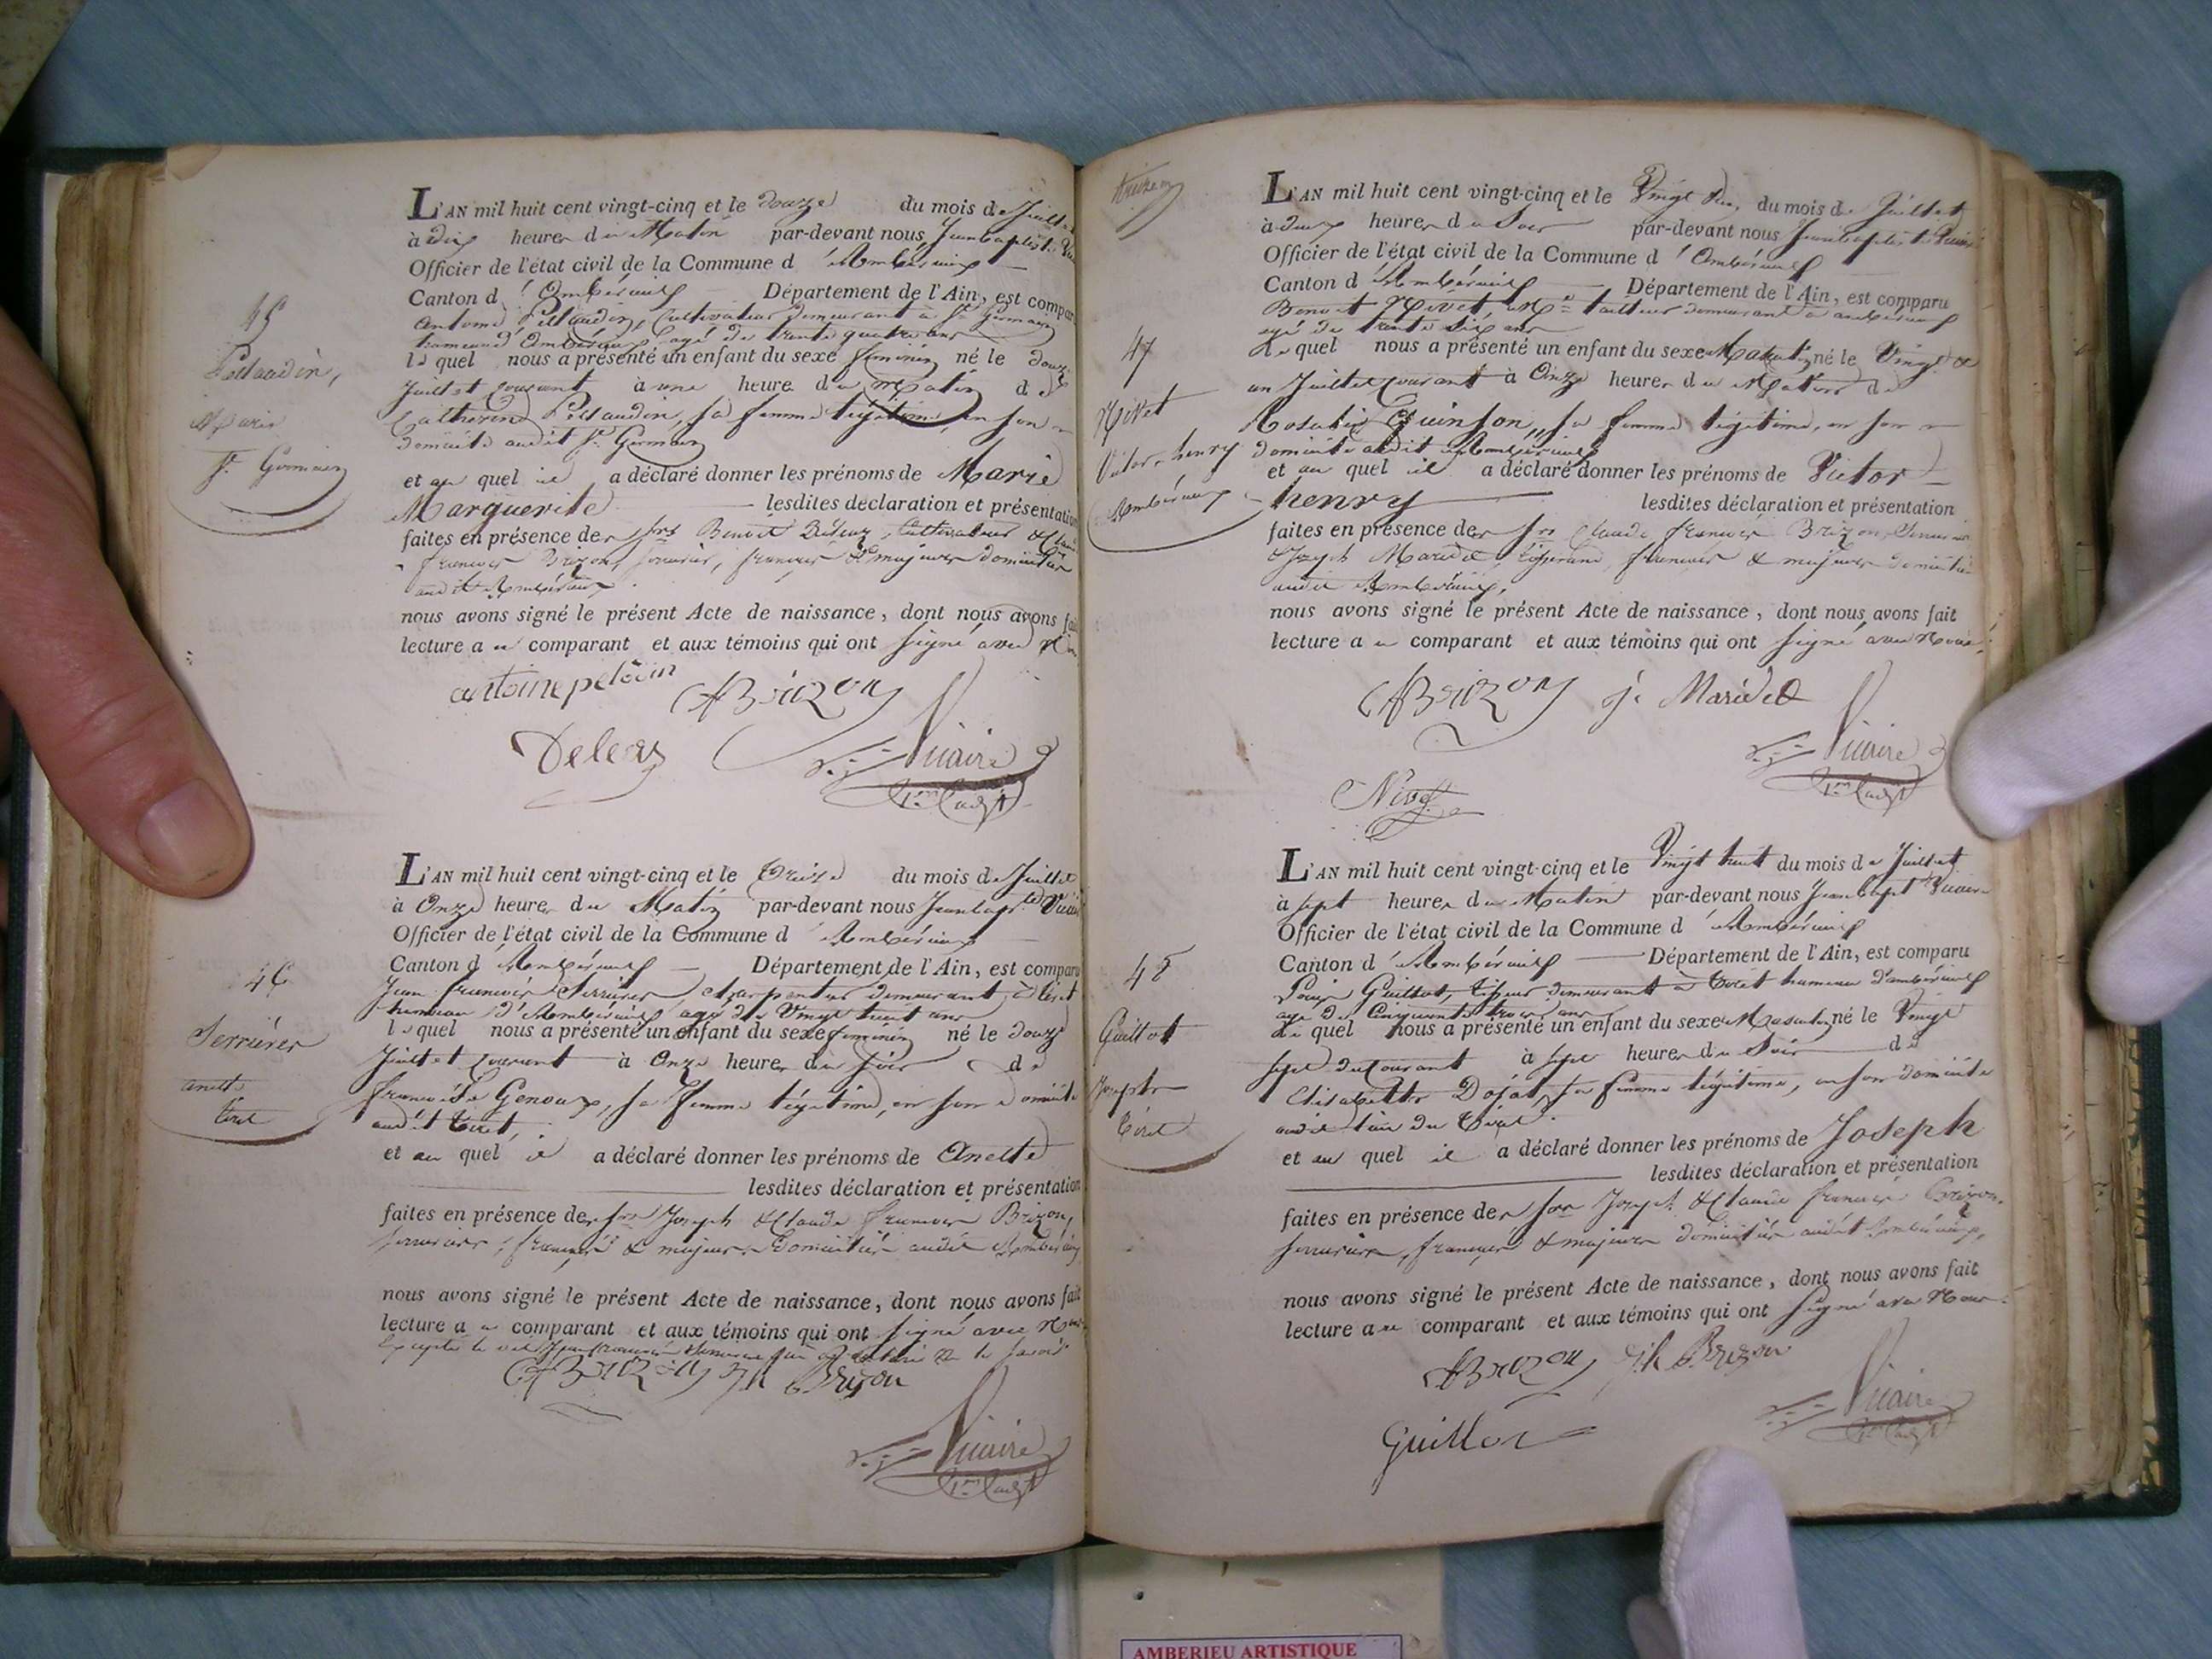 L'AN mil huit cent vingt-cinq et le douze du mois de Juillet
à dix heures du Matin par-devant nous Jean baptiste
Officier de l'état civil de la Commune d'Ambérieux
Canton d'Ambérieux Département de l'Ain, est comparu
antoine Cultivateur demeurant à St Germain
hameau d'Ambérieux, agé de trente quatre ans
45
le quel nous a présenté un enfant du sexe féminin né le douze
Juillet courant à une heure du Matin de
Catherine sa femme légitime, en son
domicile audit St Germain
Marie
St Germain
et au quel il a déclaré donner les prénoms de Marie
Marguerite lesdites déclaration et présentation
faites en présence des Srs Benoit Cultivateur & Claude
francois Brizon, serrurier, francais & majeurs domiciliés
audit Ambérieux
nous avons signé le présent Acte de naissance, dont nous avons fait
lecture au comparant et aux témoins qui ont signé avec
antoine
Brizon
Vicaire
L'AN mil huit cent vingt-cinq et le treize du mois de Juillet
à Onze heures du Matin par-devant nous Jean bapt. Vicaire
Officier de l'état civil de la Commune d'Ambérieux
Canton d'Ambérieux Département de l'Ain, est comparu
Jean francois Serrières, charpentier demeurant à tiret
hameau d'Ambérieux, agé de Vingt huit ans
46
Serrières
anette
tiret
le quel nous a présenté un enfant du sexe féminin né le douze
Juillet courant à Onze heures du soir de
francoise Genoux, sa femme légitime, en son domicile
audit tiret,
et au quel il a déclaré donner les prénoms de Anette
lesdites déclaration et présentation
faites en présence des Srs Joseph & Claude francois Brizon,
serruriers, francais & majeurs domiciliés audit Ambérieux
nous avons signé le présent Acte de naissance, dont nous avons fait
lecture au comparant et aux témoins qui ont signé avec Nous
Brizon Jh Brizon
Vicaire
L'AN mil huit cent vingt-cinq et le Vingt du mois de Juillet
à deux heures du Soir par-devant nous Jean baptiste Vicaire
Officier de l'état civil de la Commune d'Ambérieux
Canton d'Ambérieux Département de l'Ain, est comparu
Benoit Nivet, Md tailleur demeurant à ambérieux
agé de trente six ans
47
Nivet
Victor henry
Ambérieux
Le quel nous a présenté un enfant du sexe Masculin né le Vingt &
un Juillet courant à Onze heures du Matin de
Rosalie Guinson, sa femme légitime, en son
domicile audit Ambérieux
et au quel il a déclaré donner les prénoms de Victor
henry lesdites déclaration et présentation
faites en présence des Srs Claude francois Brizon, Serrurier
& Joseph Maridet, francais & majeurs domiciliés
audit Ambérieux,
nous avons signé le présent Acte de naissance, dont nous avons fait
lecture au comparant et aux témoins qui ont signé avec Nous.
Brizon j. Maridet
Vicaire
Nivet
L'AN mil huit cent vingt-cinq et le Vingt huit du mois de Juillet
à sept heures du Matin par-devant nous Jean bapt Vicaire
Officier de l'état civil de la Commune d'Ambérieux
Canton d'Ambérieux Département de l'Ain, est comparu
Guillot, demeurant à tiret hameau d'ambérieux
agé de Cinquante trois ans
48
Guillot
Joseph
tiret
Le quel nous a présenté un enfant du sexe Masculin né le Vingt
sept du courant à sept heures du Soir de
Elisabeth sa femme légitime, en son domicile
audit lieu du tiret
et au quel il a déclaré donner les prénoms de Joseph
lesdites déclaration et présentation
faites en présence des Srs Joseph & Claude francois Brizon
serruriers, francais & majeurs domiciliés audit Ambérieux,
nous avons signé le présent Acte de naissance, dont nous avons fait
lecture au comparant et aux témoins qui ont signé avec Nous
Brizon Jh Brizon
Guillot
Vicaire
AMBERIEU ARTISTIQUE